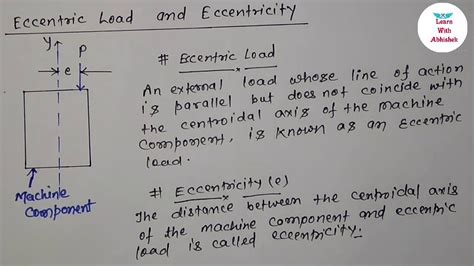 Eccentric Load and Eccentricity
Learn
With
Abhishek
y
P
e
Machine
Component
# Eccentric Load
An external load whose line of action
is parallel but does not coincide with
the centroidal axis of the machine
Component, is known as an Eccentric
load.
# Eccentricity (e)
The distance between the centroidal axis
of the machine component and eccentric
load is called eccentricity.